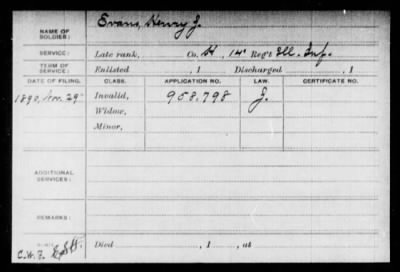 NAME OF SOLDIER: Evans, Henry J.
SERVICE: Late rank, Co. H, 14" Reg't Ill. Inf.
TERM OF SERVICE: Enlisted , 1 Discharged , 1
DATE OF FILING. CLASS. APPLICATION NO. LAW. CERTIFICATE NO.
1890, Nov. 29 Invalid, 958,798 J.
Widow,
Minor,
ADDITIONAL SERVICES:
REMARKS:
Died , 1 , at
C.W.F.